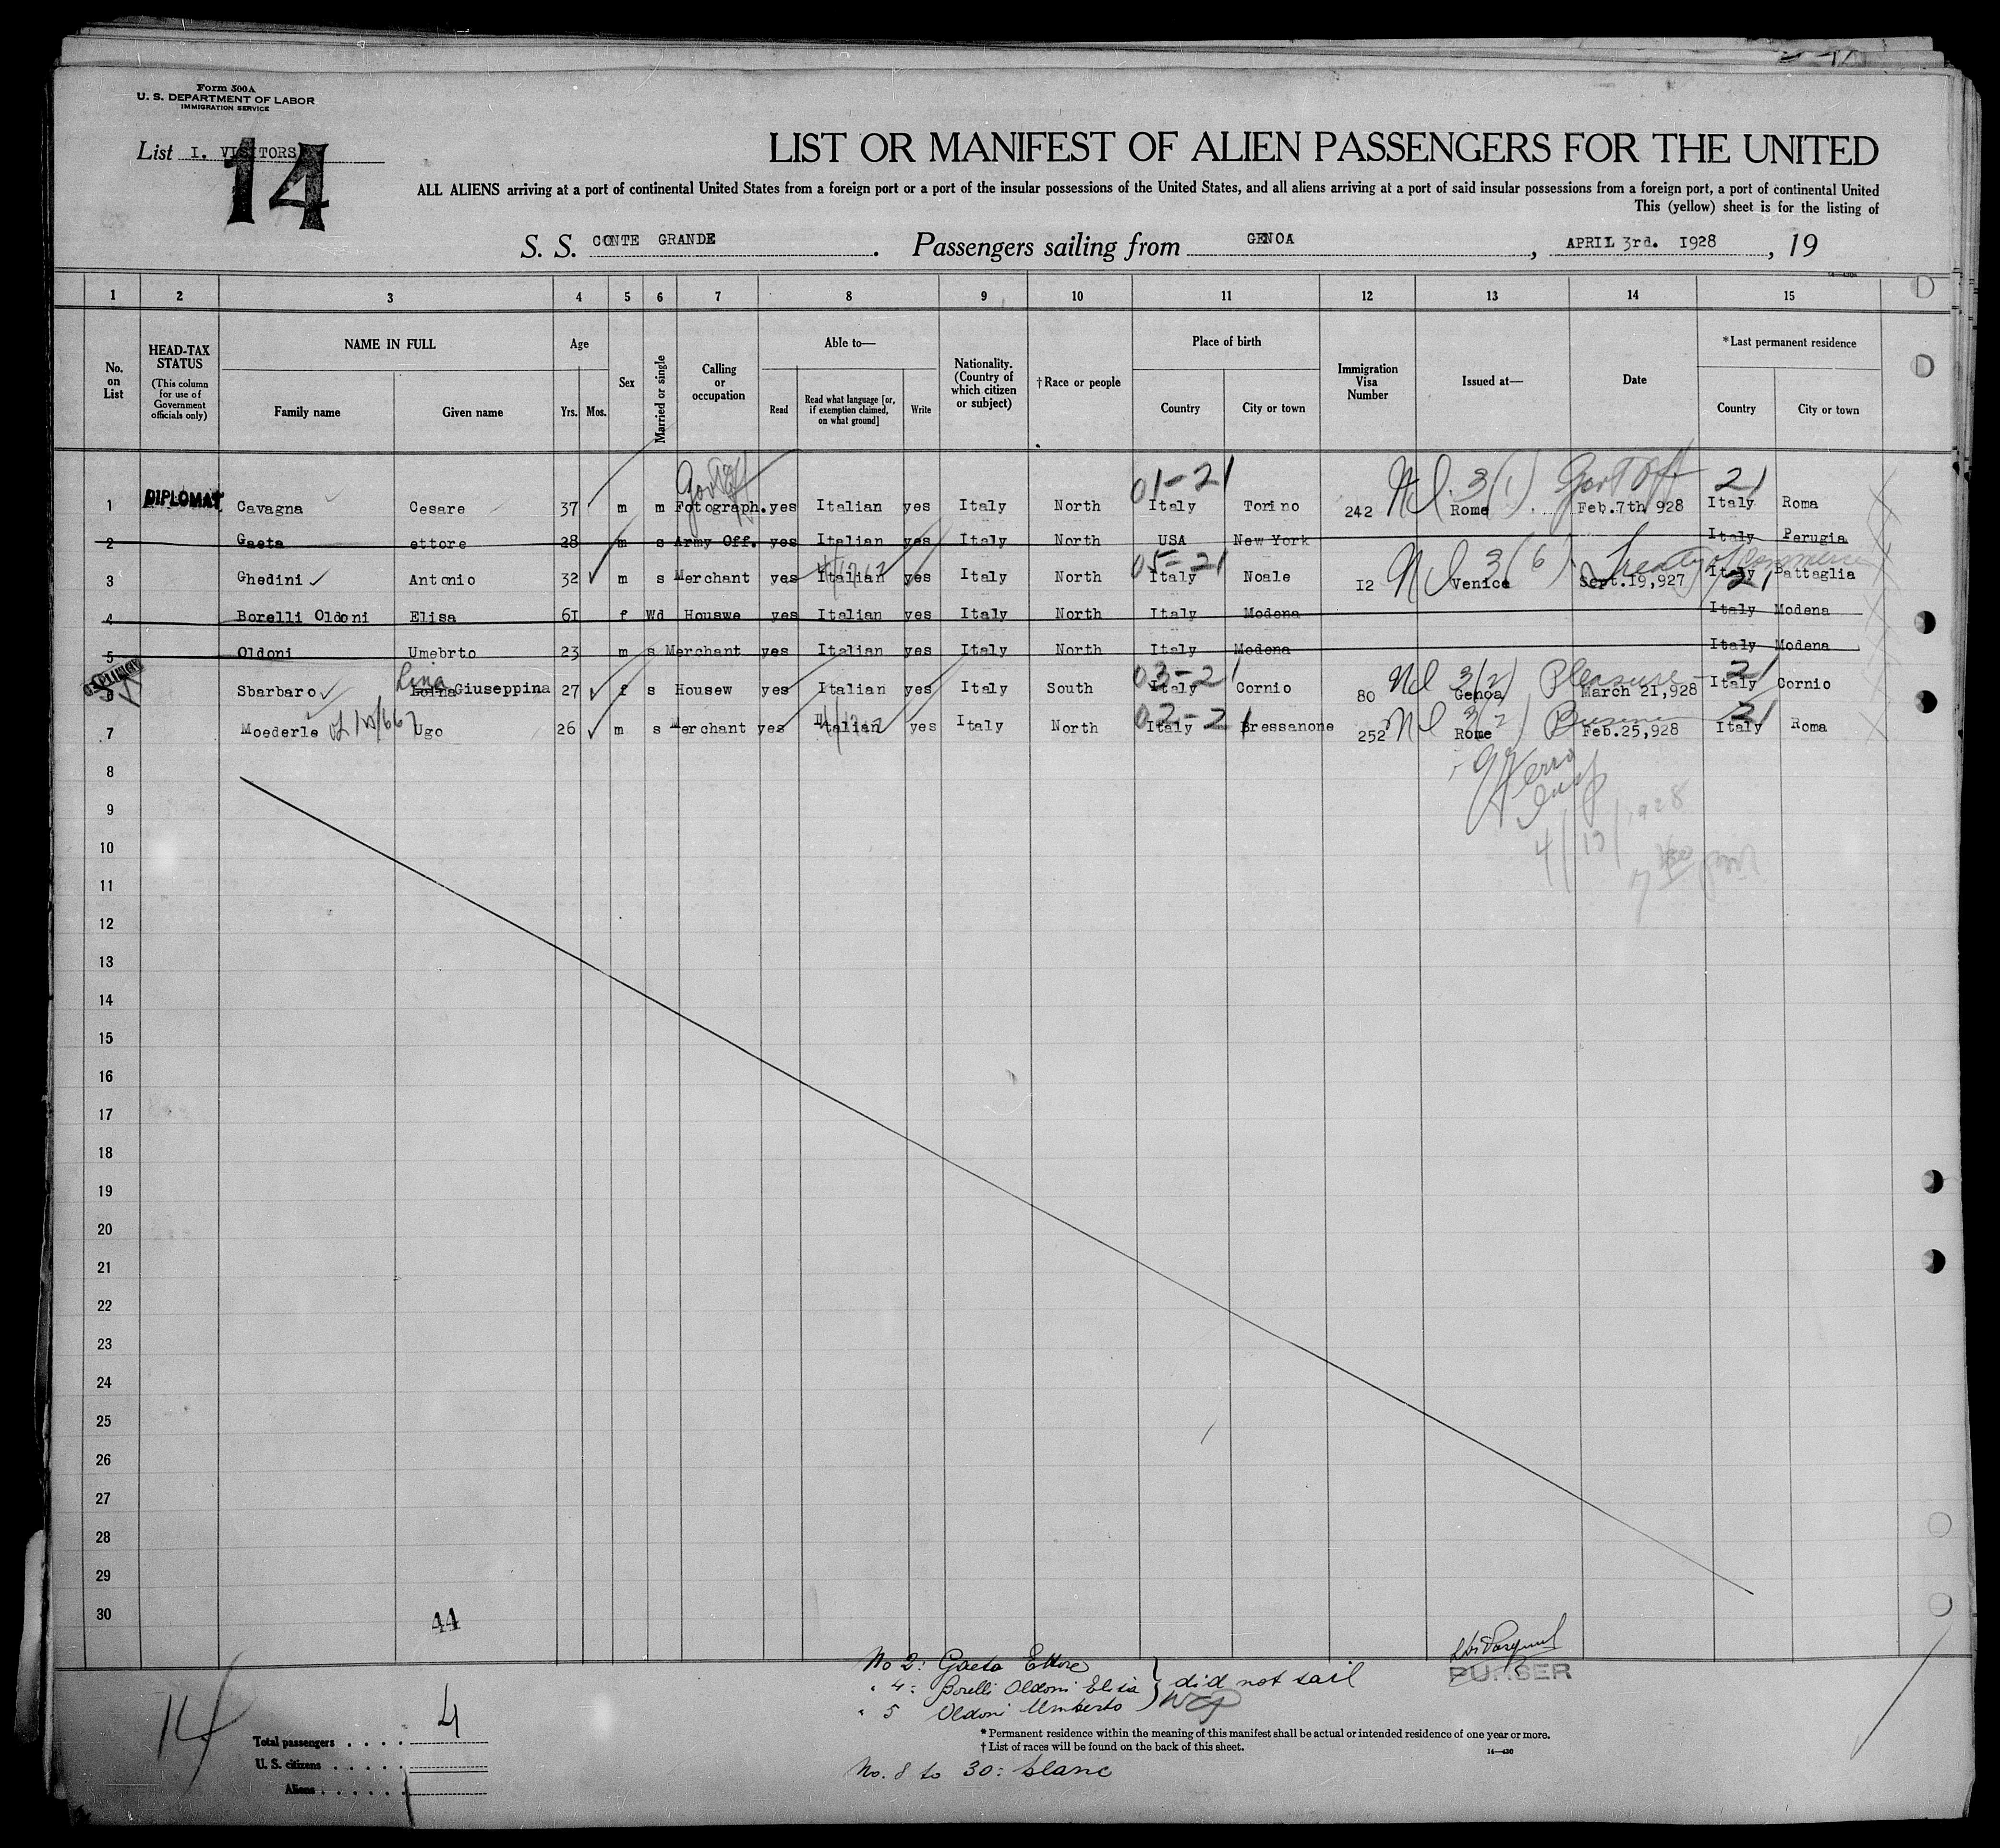 Form 500A
U. S. DEPARTMENT OF LABOR
IMMIGRATION SERVICE
List I. VISITORS
14
LIST OR MANIFEST OF ALIEN PASSENGERS FOR THE UNITED
ALL ALIENS arriving at a port of continental United States from a foreign port or a port of the insular possessions of the United States, and all aliens arriving at a port of said insular possessions from a foreign port, a port of continental United
This (yellow) sheet is for the listing of
S. S. CONTE GRANDE. Passengers sailing from GENOA, APRIL 3rd. I928, 19
1 2 3 4 5 6 7 8 9 10 11 12 13 14 15
No. on List
HEAD-TAX STATUS
(This column for use of Government officials only)
NAME IN FULL
Family name Given name
Age
Yrs. Mos.
Sex
Married or single
Calling or occupation
Able to—
Read
Read what language [or, if exemption claimed, on what ground]
Write
Nationality. (Country of which citizen or subject)
†Race or people
Place of birth
Country City or town
Immigration Visa Number
Issued at—
Date
*Last permanent residence
Country City or town
Gov't Off 01-21 3(1) Gov't Off 21
1 DIPLOMAT Cavagna Cesare 37 m m Fotograph. yes Italian yes Italy North Italy Torino 242 Rome Feb.7th 928 Italy Roma
2 Gaeta ettore 28 m s Army Off. yes Italian yes Italy North USA New York Italy Perugia
05-21 3(6) Treaty of Commerce 21
3 Ghedini Antonio 32 m s Merchant yes Italian yes Italy North Italy Noale I2 Venice Sept.19,927 Italy Battaglia
4 Borelli Oldoni Elisa 6I f Wd Houswe yes Italian yes Italy North Italy Modena Italy Modena
5 Oldoni Umebrto 23 m s Merchant yes Italian yes Italy North Italy Modena Italy Modena
Lina 03-21 3(2) Pleasure 21
6 Sbarbaro Giuseppina 27 f s Housew yes Italian yes Italy South Italy Cornio 80 Genoa March 21,928 Italy Cornio
02-21 3(2) 21
7 Moederle Ugo 26 m s Merchant yes Italian yes Italy North Italy Bressanone 252 Rome Feb.25,928 Italy Roma
8
9
10
11
12
13
14
15
16
17
18
19
20
21
22
23
24
25
26
27
28
29
30
44
PURSER
No 2: Gaeta Ettore
" 4: Borelli Oldoni Elisa } did not sail
" 5 Oldoni Umberto
14
Total passengers . . . . 4
U. S. citizens . . . . .
Aliens . . . . . .
* Permanent residence within the meaning of this manifest shall be actual or intended residence of one year or more.
† List of races will be found on the back of this sheet.
14—430
No. 8 to 30: blanc